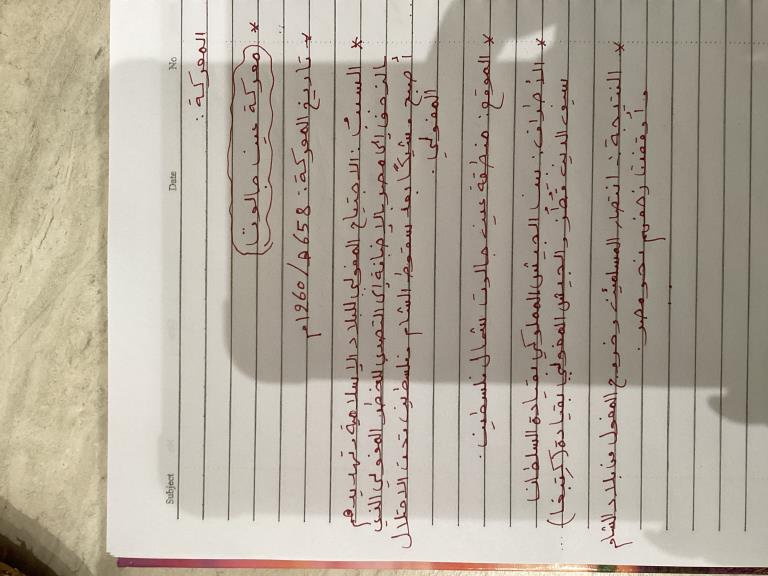 No
Date
Subject
المعركة :
* معركة عين جالوت
* تاريخ المعركة : 658هـ/1260م
* السبب : الاجتياح المغولي للبلاد الإسلامية وتهديدهم
بالزحف إلى مصر بالإضافة إلى التصدي للخطر المغولي الذي
أصبح وشيكًا بعد سقوط الشام وفلسطين تحت الاحتلال
المغولي.
* الموقع : منطقة عين جالوت شمال فلسطين.
* الأطراف : بين الجيش المملوكي بقيادة السلطان
سيف الدين قطز والجيش المغولي بقيادة (كتبغا)
* النتيجة : انتصار المسلمين وخروج المغول من بلاد الشام
وأوقفت زحفهم نحو مصر.